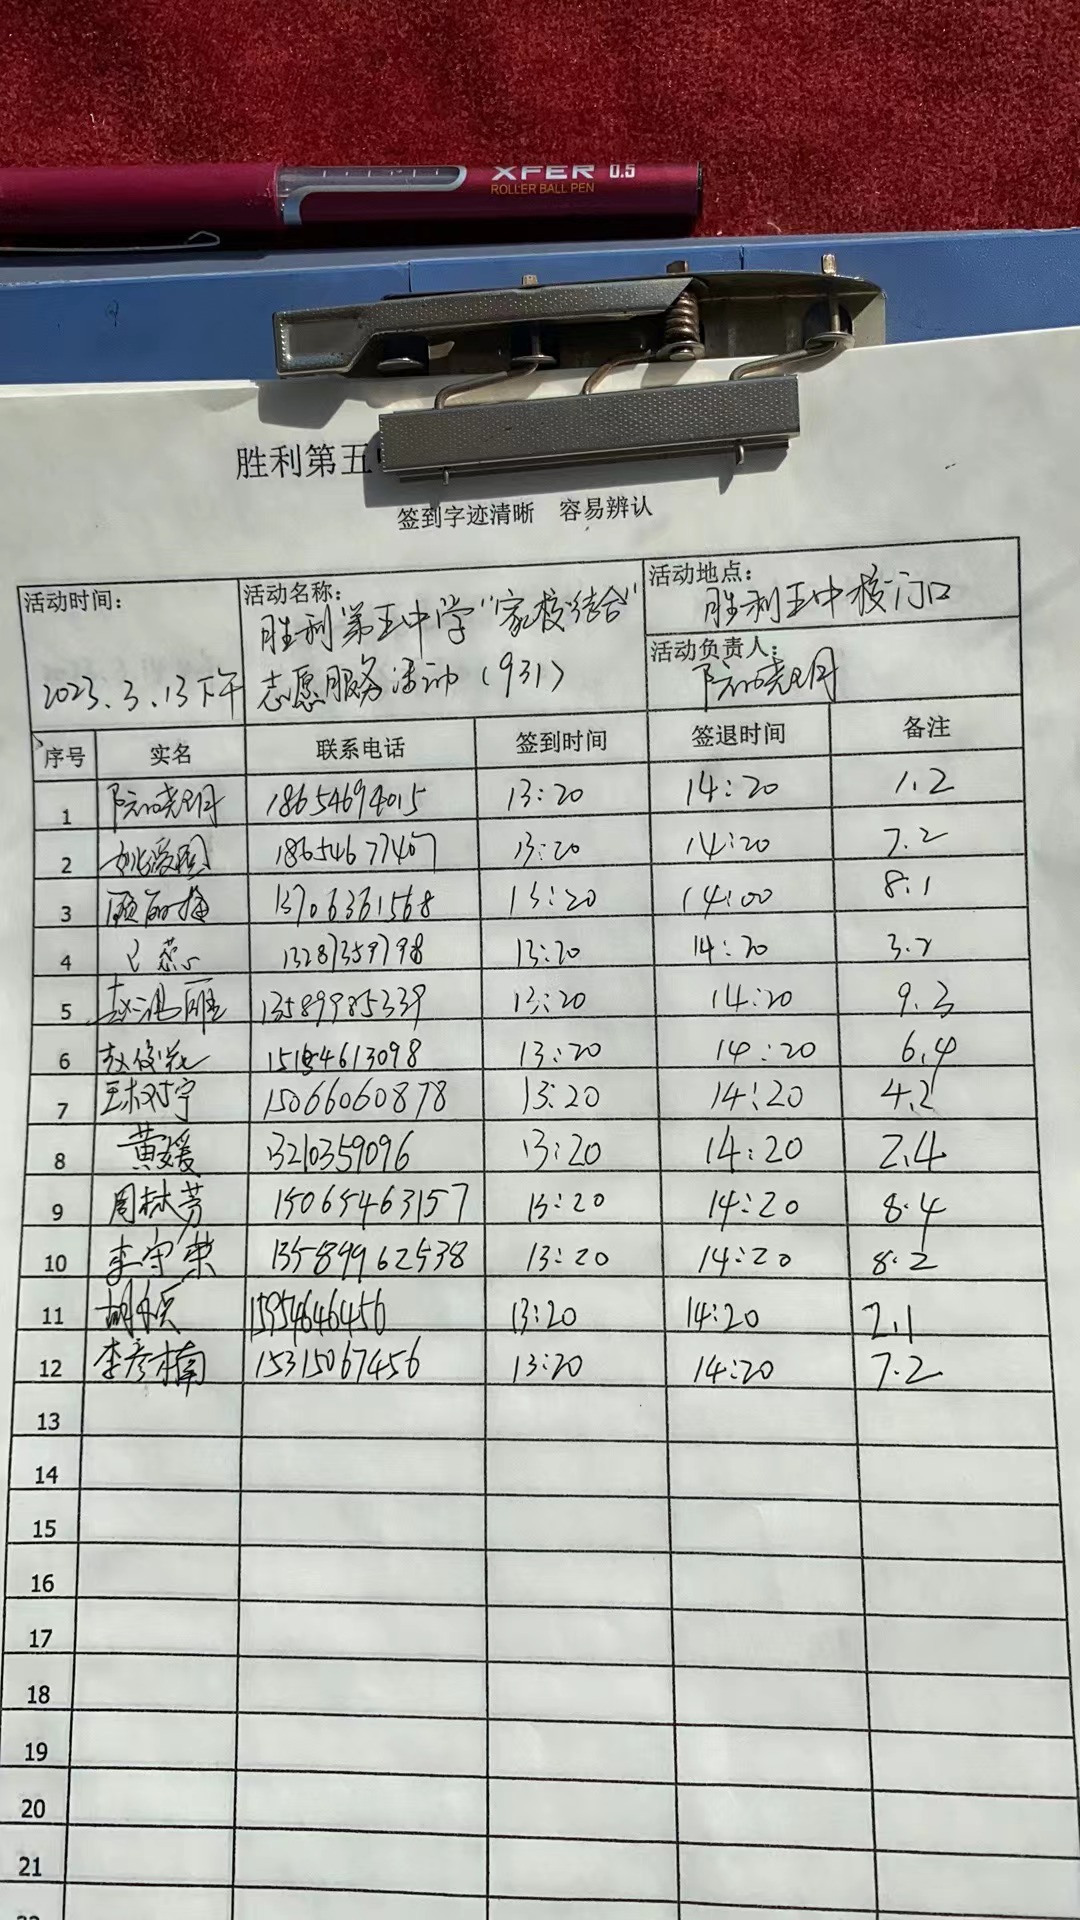 XFER 0.5
ROLLER BALL PEN
胜利第五
签到字迹清晰 容易辨认
活动时间: 2023.3.13下午
活动名称: 胜利第五中学"家校结合"
志愿服务活动(931)
活动地点: 胜利五中校门口
活动负责人:
序号 实名 联系电话 签到时间 签退时间 备注
1 18654694015 13:20 14:20 1.2
2 18654677407 13:20 14:20 7.2
3 13706361568 13:20 14:00 8.1
4 13287359798 13:20 14:20 3.2
5 13589985339 13:20 14:20 9.3
6 13:20 14:20 6.4
7 王树宁 15066060878 13:20 14:20 4.2
8 黄媛 13210359096 13:20 14:20 2.4
9 周林芳 15065463157 13:20 14:20 8.4
10 李守荣 13589962538 13:20 14:20 8.2
11 15954646456 13:20 14:20 2.1
12 李彦楠 15315067456 13:20 14:20 7.2
13
14
15
16
17
18
19
20
21